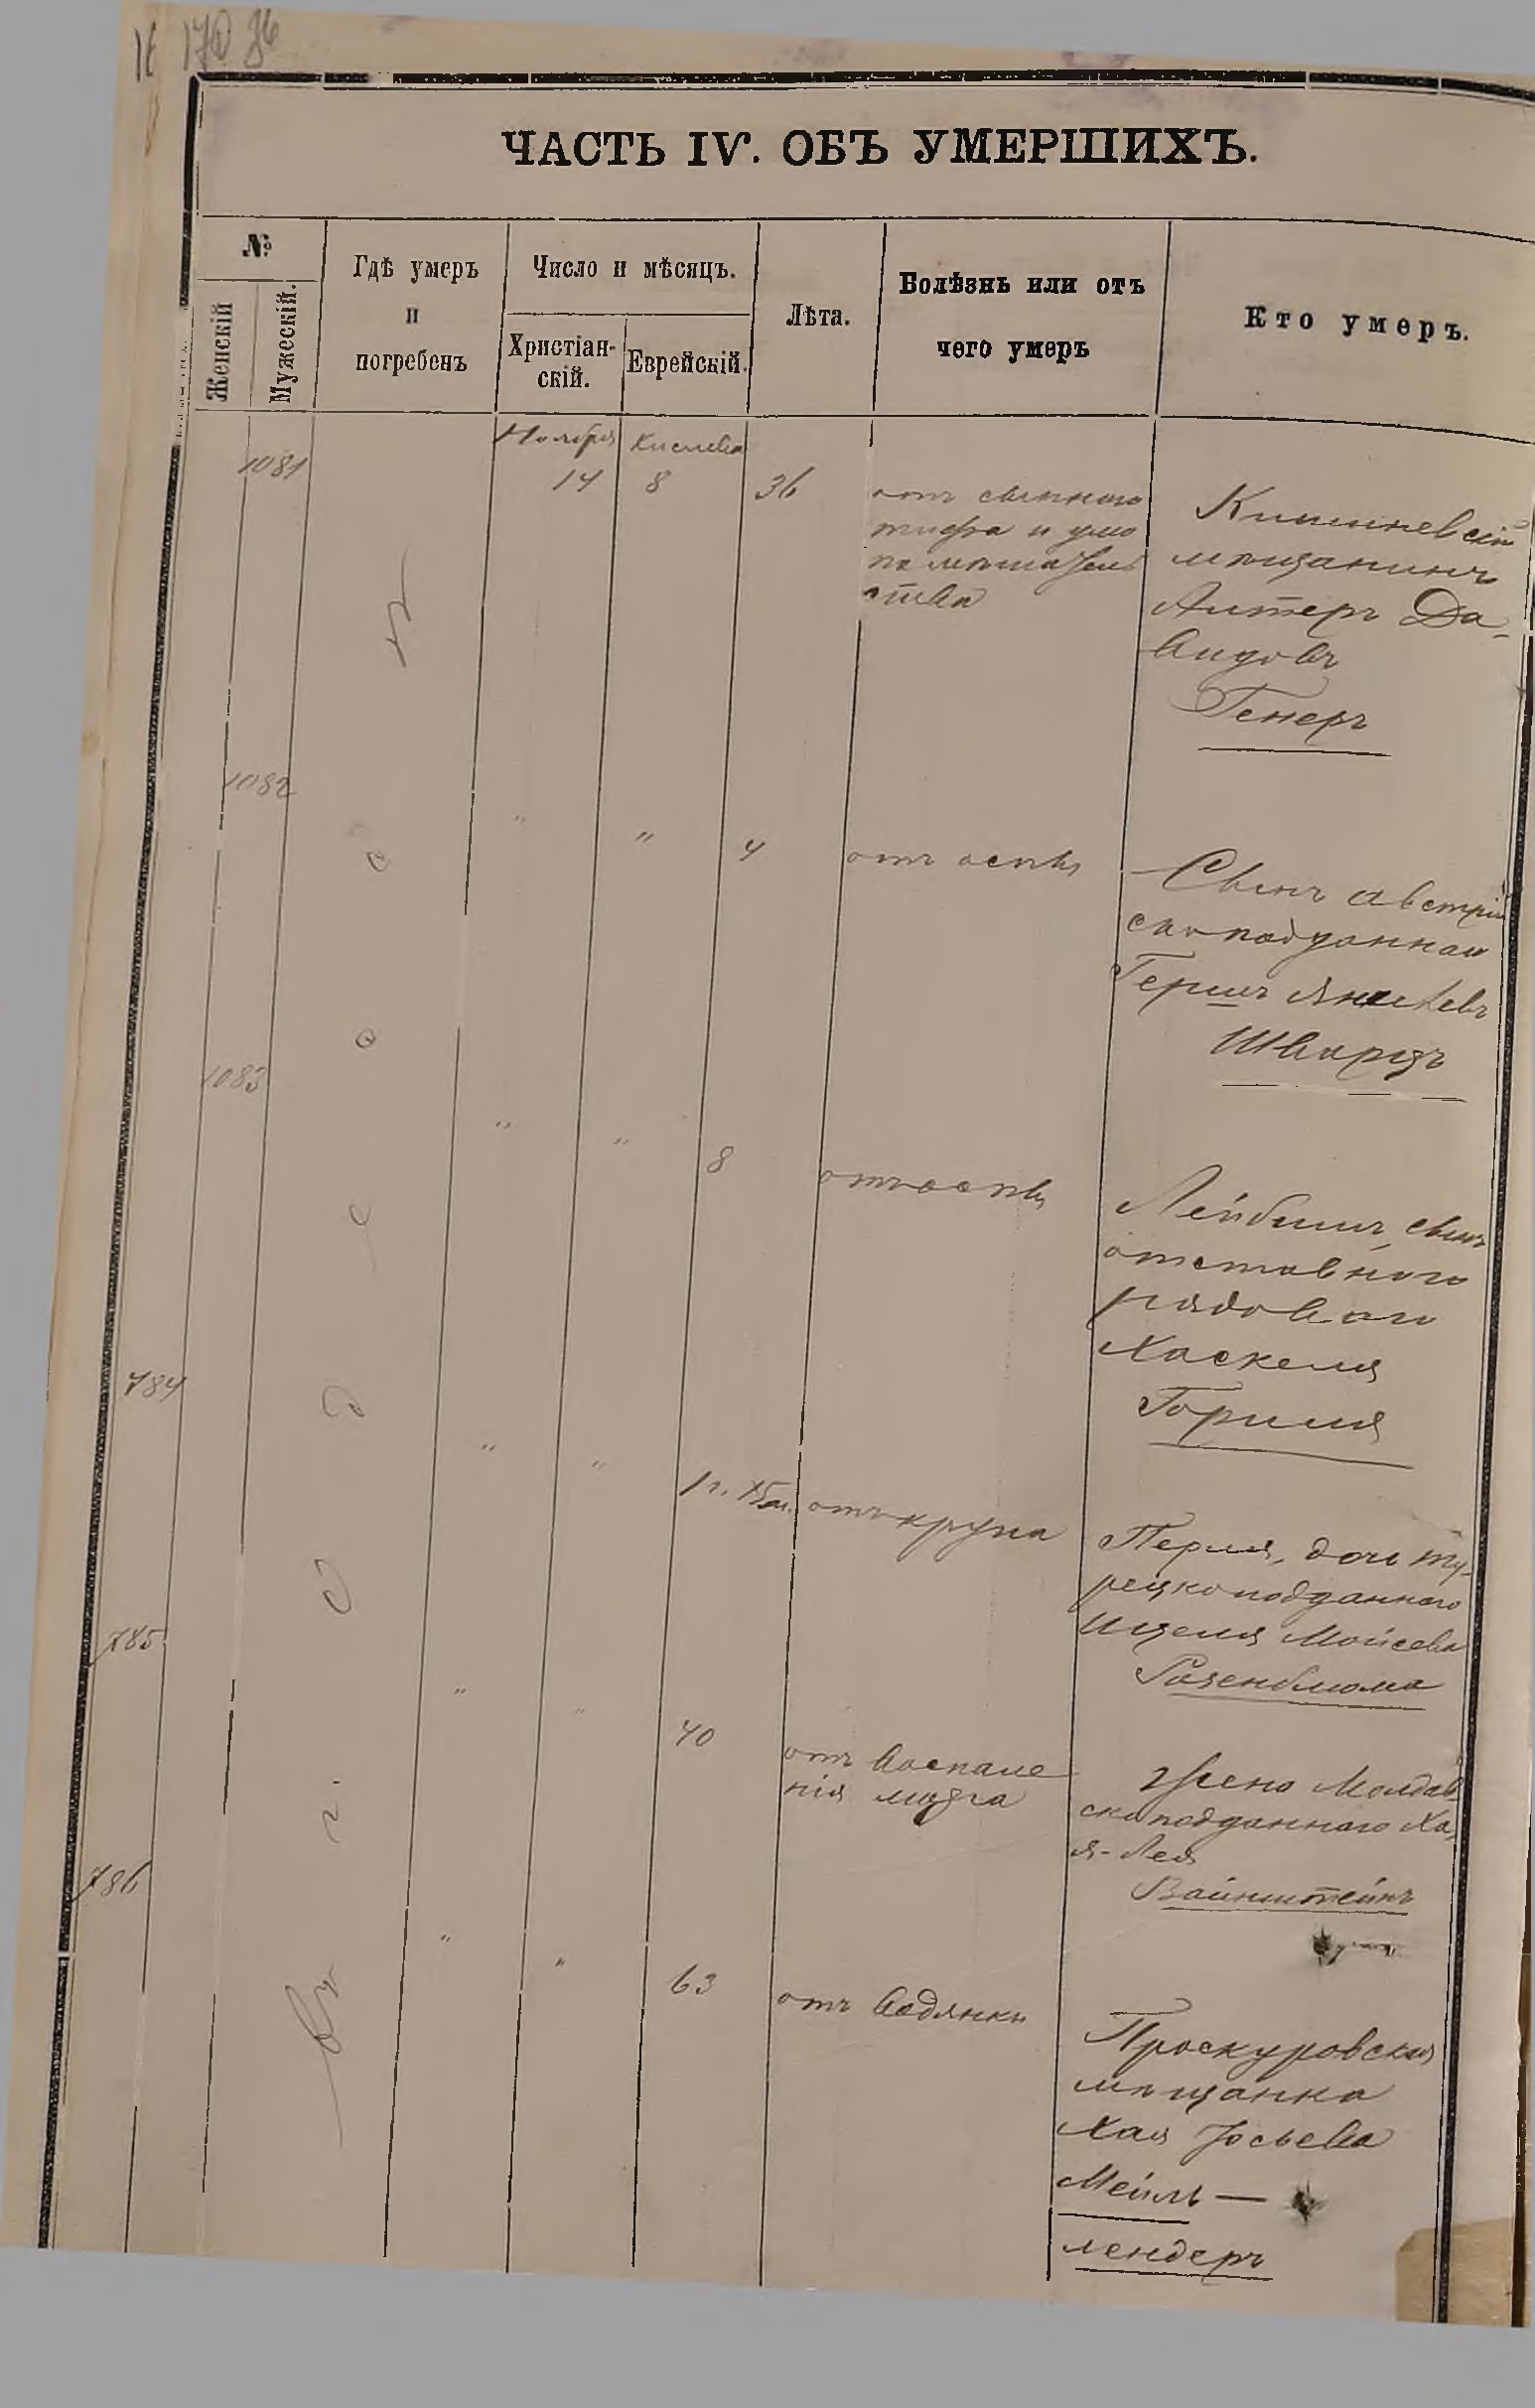 170 36
ЧАСТЬ IV. ОБЪ УМЕРШИХЪ.
№
Женскій
Мужескій.
Гдѣ умеръ
и
погребенъ
Число и мѣсяцъ.
Христіан-
скій.
Еврейскій.
Лѣта.
Болѣзнь или отъ
чего умеръ
Кто умеръ.
въ г. Одессѣ
Ноября Кислева
1081 14 8 36
отъ сыпного
тифа и умо
помѣшатель
ства
Кишиневскій
мѣщанинъ
Алтеръ Да-
видовъ
Генеръ
1082 " " 4 отъ оспы
Сынъ австрій
скоподданнаго
Гершъ Янкелевъ
Шварцъ
1083 " " 8 отъ оспы
Лейбишъ, сынъ
отставного
рядового
Хаскеля
Горшля
784 " " 1 г. отъ крупа
Перля, дочь ту-
рецкоподданного
Ицеля Мойсева
Розенблюма
785 " " 40 отъ воспале
нія мозга
Жена Молдав-
скоподданнаго Ха-
я-Лея
Вайнштейнъ
786 " " 63 отъ водянки
Проскуровская
мѣщанка
Хая Іосьева
Мейль—
лендеръ